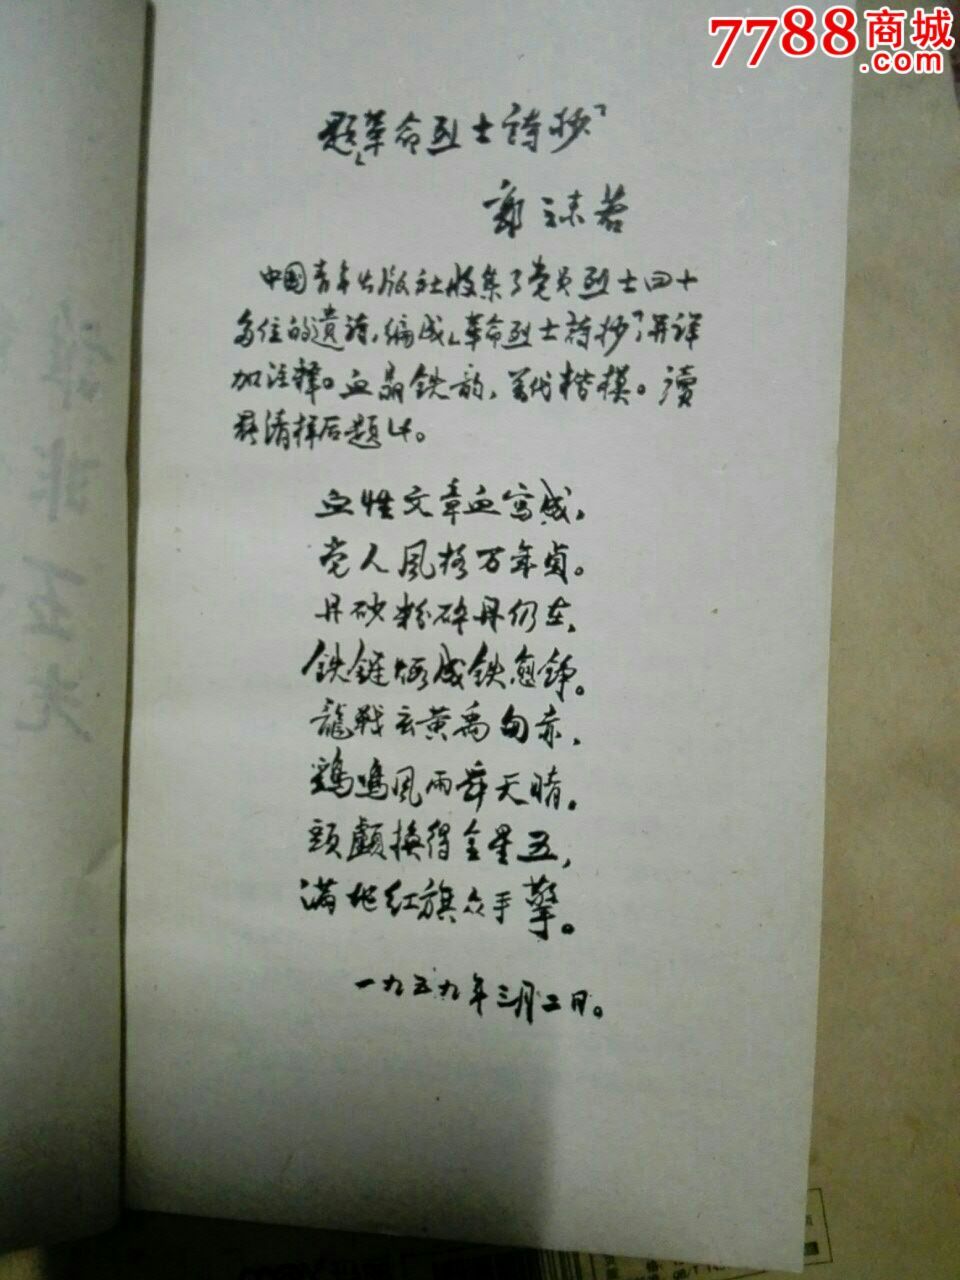 7788商城
.com
题「革命烈士诗抄」
郭沫若
中国青年出版社收集了党员烈士四十
多位的遗诗,编成「革命烈士诗抄」,并详
加注释。血晶铁韵,万代楷模。读
其清样后题此。
血性文章血写成,
党人风格万年贞。
丹砂粉碎丹仍在,
铁链锻成铁愈铮。
龍战玄黄禹甸赤,
鷄鸣风雨舜天晴。
頭顱换得金星五,
满地红旗众手擎。
一九五九年三月二日。